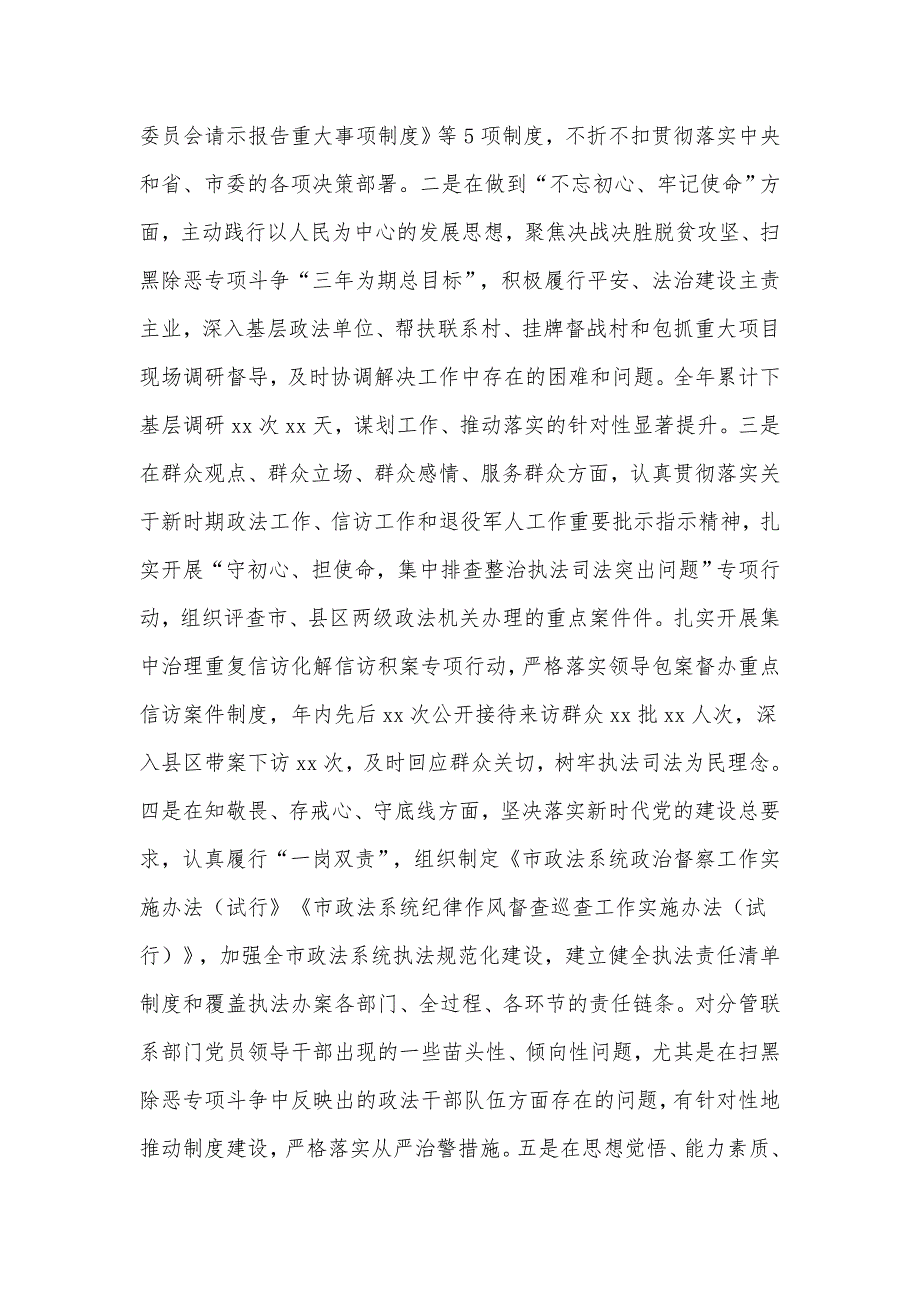 委员会请示报告重大事项制度》等5项制度，不折不扣贯彻落实中央
和省、市委的各项决策部署。二是在做到“不忘初心、牢记使命”方
面，主动践行以人民为中心的发展思想，聚焦决战决胜脱贫攻坚、扫
黑除恶专项斗争“三年为期总目标”，积极履行平安、法治建设主责
主业，深入基层政法单位、帮扶联系村、挂牌督战村和包抓重大项目
现场调研督导，及时协调解决工作中存在的困难和问题。全年累计下
基层调研xx次xx天，谋划工作、推动落实的针对性显著提升。三是
在群众观点、群众立场、群众感情、服务群众方面，认真贯彻落实关
于新时期政法工作、信访工作和退役军人工作重要批示指示精神，扎
实开展“守初心、担使命，集中排查整治执法司法突出问题”专项行
动，组织评查市、县区两级政法机关办理的重点案件件。扎实开展集
中治理重复信访化解信访积案专项行动，严格落实领导包案督办重点
信访案件制度，年内先后xx次公开接待来访群众xx批xx人次，深
入县区带案下访xx次，及时回应群众关切，树牢执法司法为民理念。
四是在知敬畏、存戒心、守底线方面，坚决落实新时代党的建设总要
求，认真履行“一岗双责”，组织制定《市政法系统政治督察工作实
施办法（试行》《市政法系统纪律作风督查巡查工作实施办法（试
行）》，加强全市政法系统执法规范化建设，建立健全执法责任清单
制度和覆盖执法办案各部门、全过程、各环节的责任链条。对分管联
系部门党员领导干部出现的一些苗头性、倾向性问题，尤其是在扫黑
除恶专项斗争中反映出的政法干部队伍方面存在的问题，有针对性地
推动制度建设，严格落实从严治警措施。五是在思想觉悟、能力素质、